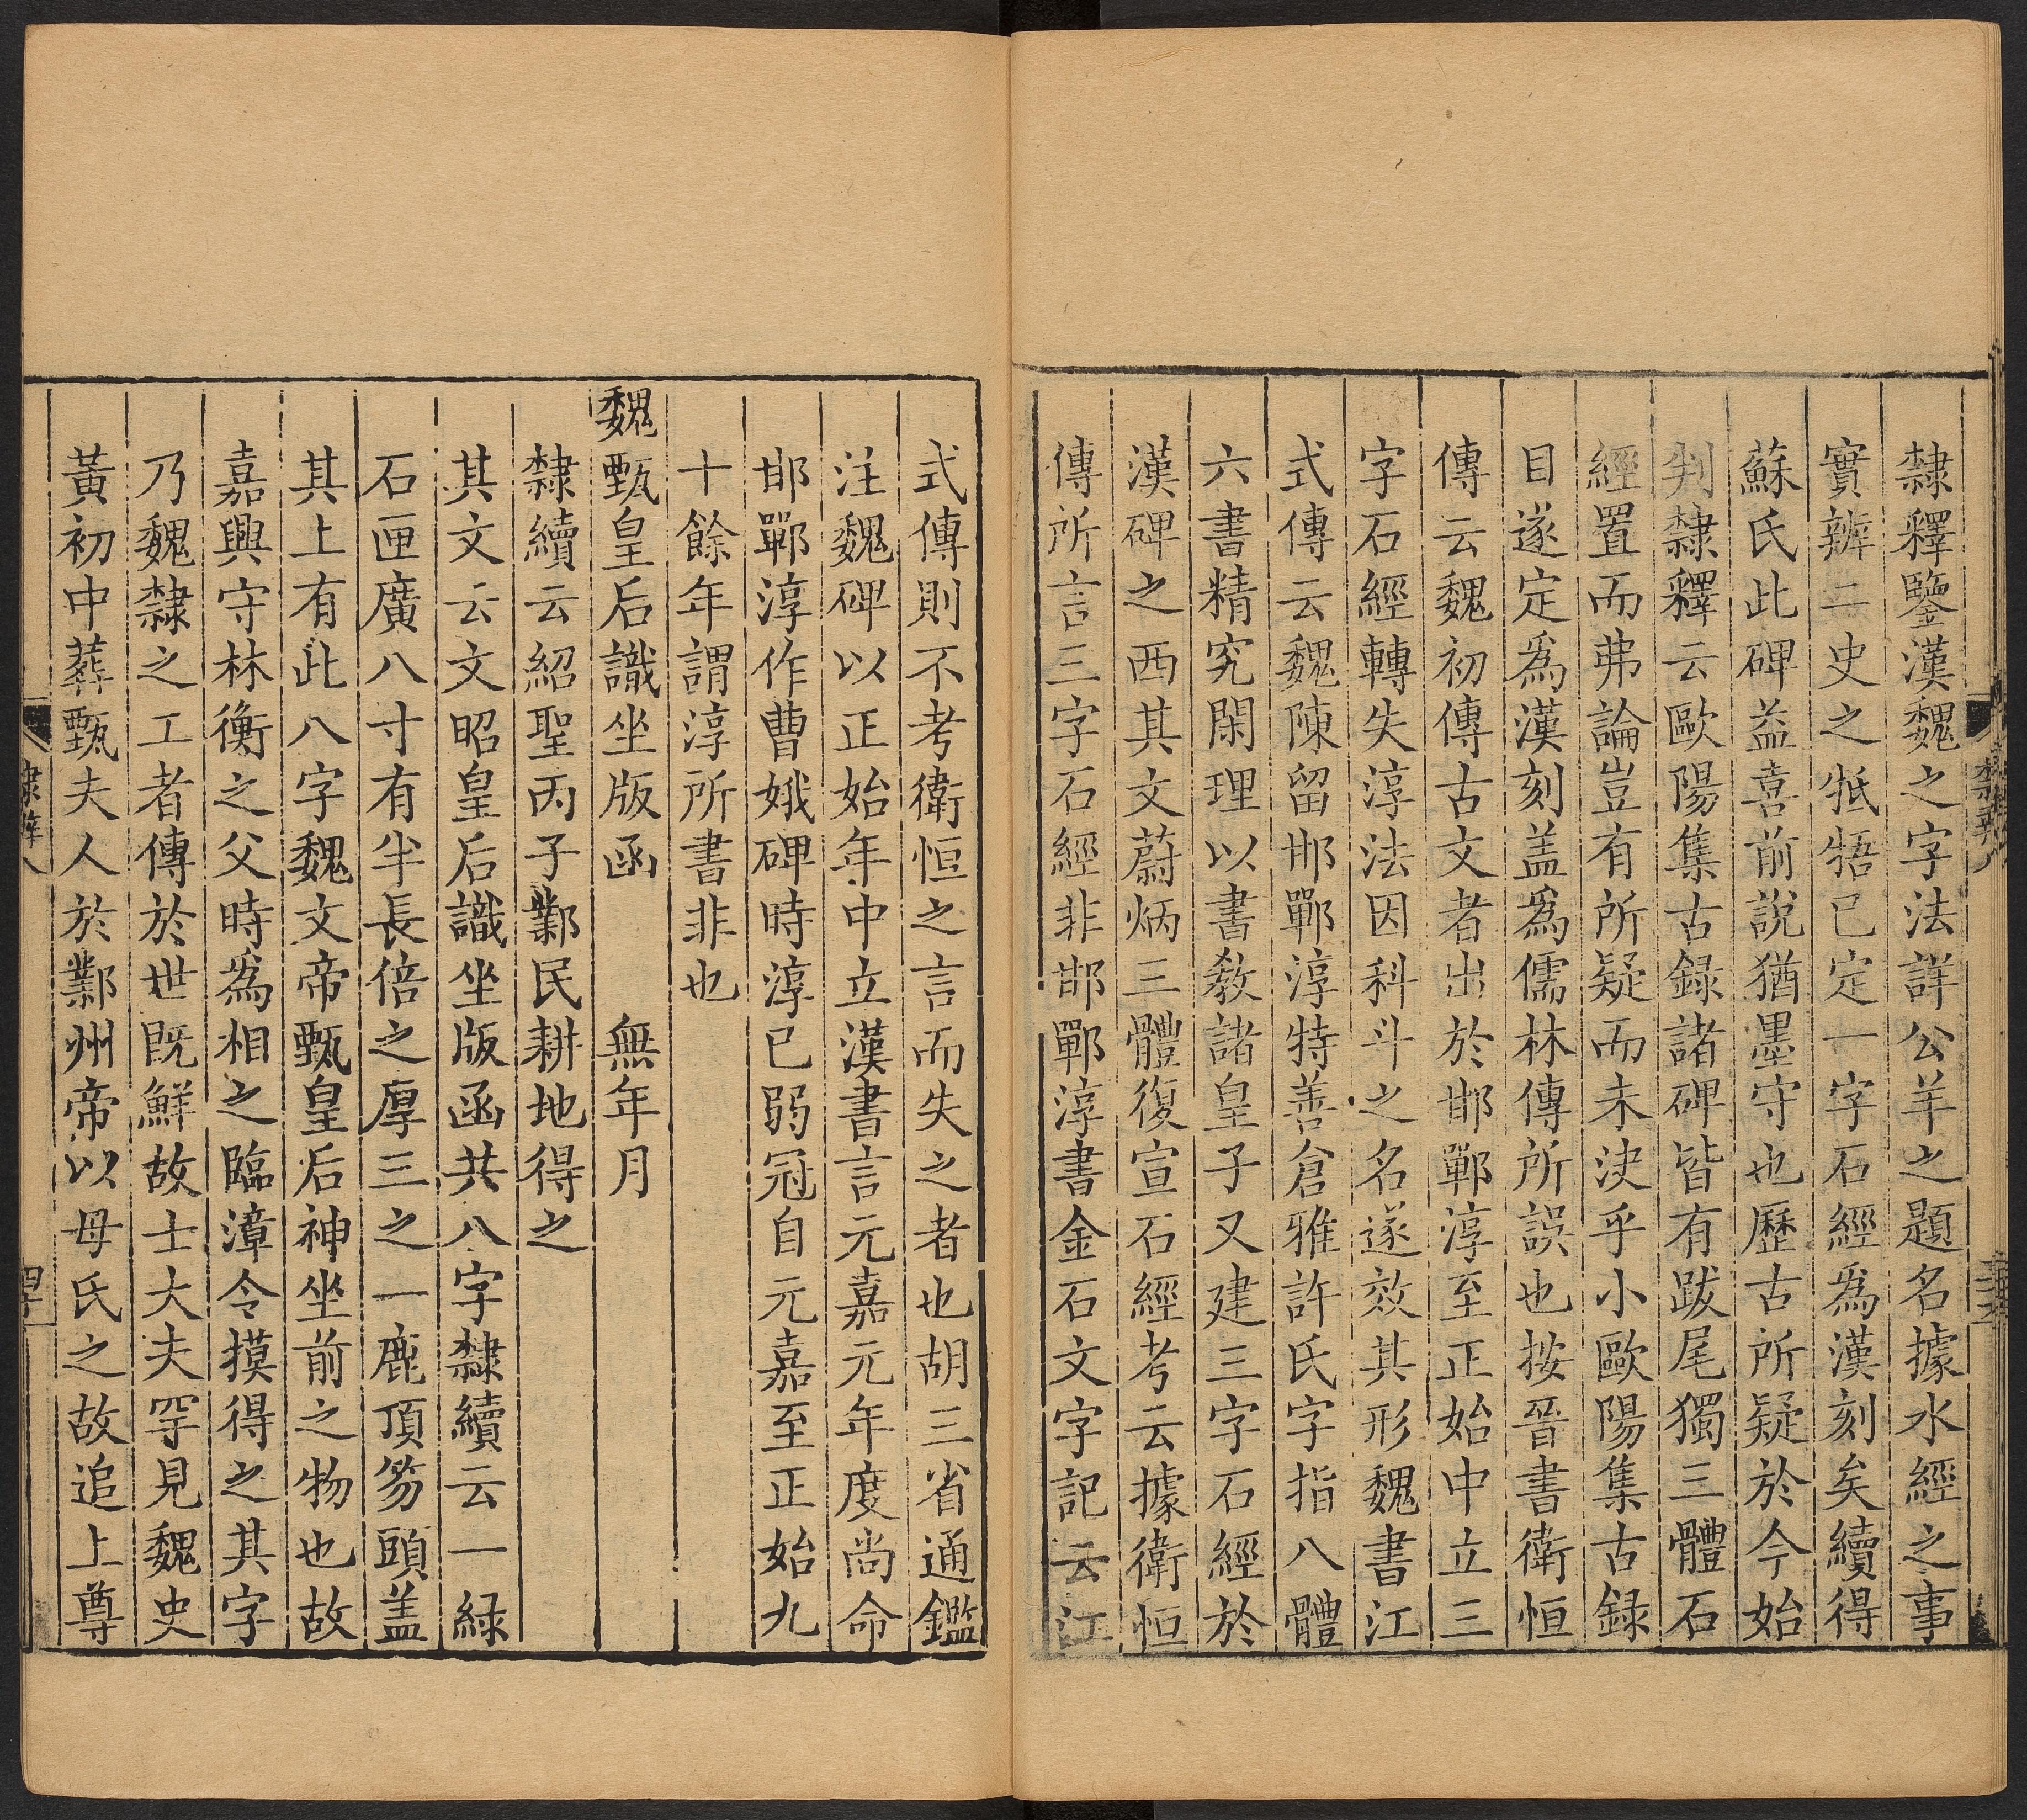 隸釋鑒漢魏之字法詳公羊之題名據水經之事
實辨二史之牴牾已定一字石經爲漢刻矣續得
蘇氏此碑益喜前說猶墨守也歷古所疑於今始
判隸釋云歐陽集古録諸碑皆有跋尾獨三體石
經置而弗論豈有所疑而未決乎小歐陽集古録
目遂定爲漢刻盖爲儒林傳所誤也按晉書衛恒
傳云魏初傳古文者出於邯鄲淳至正始中立三
字石經轉失淳法因科斗之名遂效其形魏書江
式傳云魏陳留邯鄲淳特善倉雅許氏字指八體
六書精究閑理以書教諸皇子又建三字石經於
漢碑之西其文蔚炳三體復宣石經考云據衛恒
傳所言三字石經非邯鄲淳書金石文字記云江
式傳則不考衛恒之言而失之者也胡三省通鑑
注魏碑以正始年中立漢書言元嘉元年度尚命
邯鄲淳作曹娥碑時淳已弱冠自元嘉至正始九
十餘年謂淳所書非也
魏甄皇后識坐版函　無年月
隸續云紹聖丙子鄴民耕地得之
其文云文昭皇后識坐版函共八字隸續云一緑
石匣廣八寸有半長倍之厚三之一鹿頂笏頭盖
其上有此八字魏文帝甄皇后神坐前之物也故
嘉興守林衡之父時爲相之臨漳令摸得之其字
乃魏隸之工者傳於世既鮮故士大夫罕見魏史
黃初中葬甄夫人於鄴州帝以母氏之故追上尊